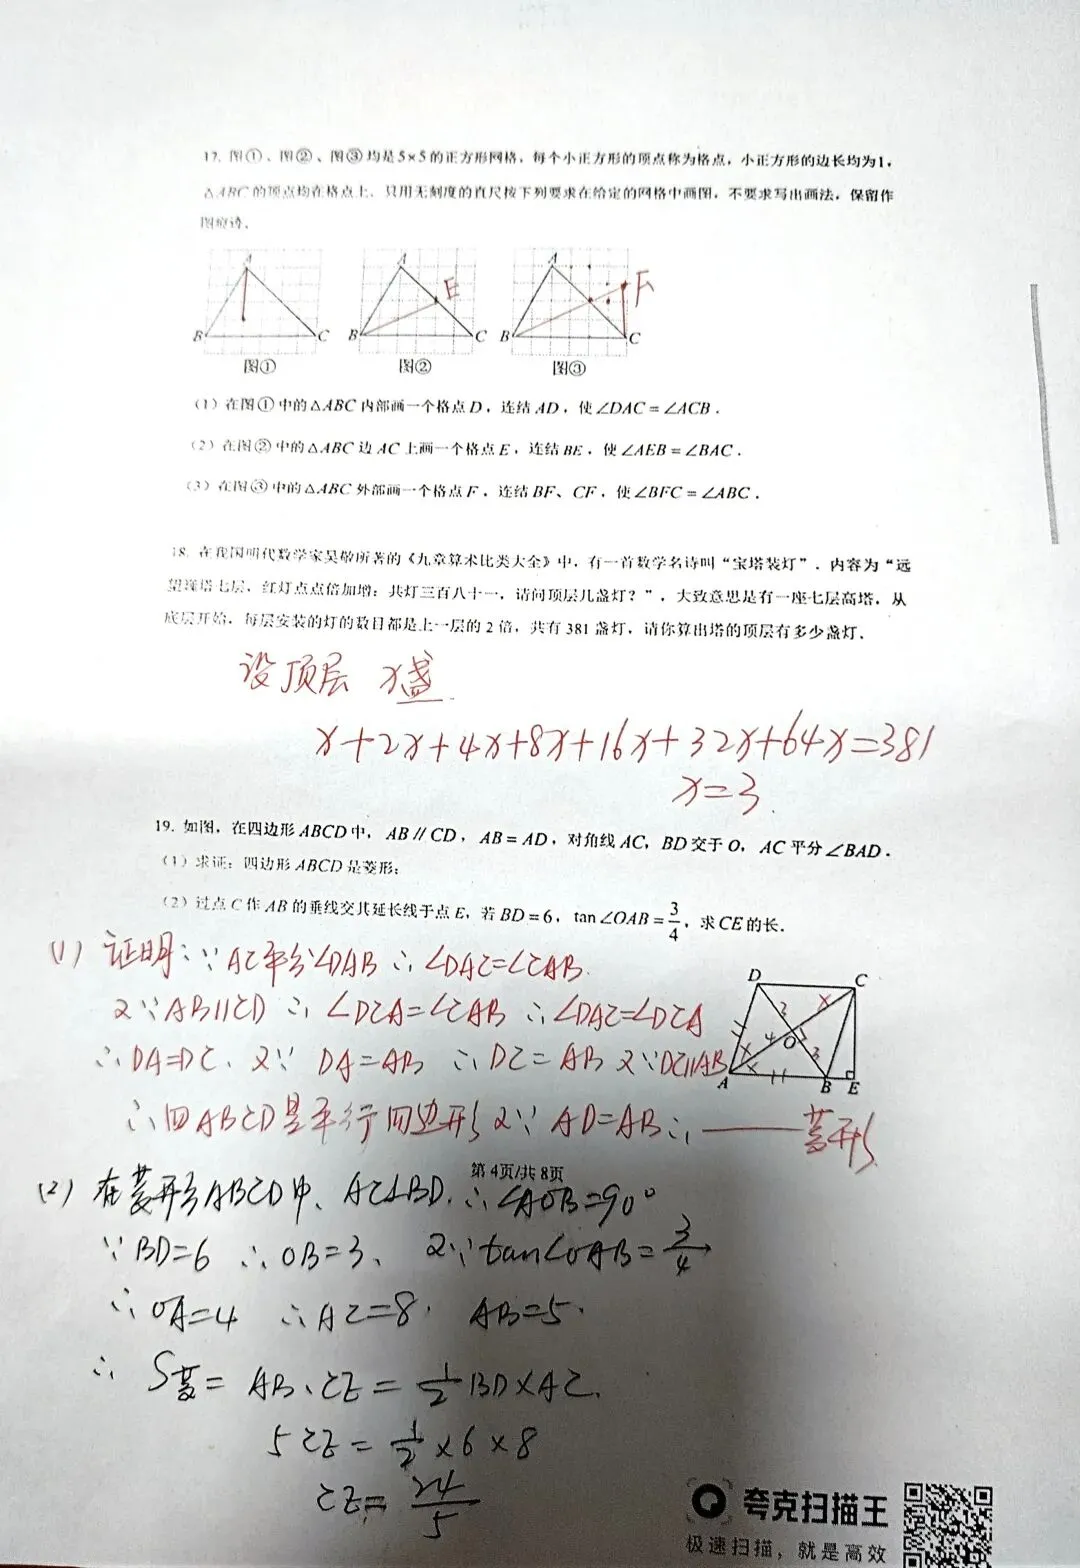 17. 图①、图②、图③均是5×5的正方形网格，每个小正方形的顶点称为格点，小正方形的边长均为1，
△ABC的顶点均在格点上．只用无刻度的直尺按下列要求在给定的网格中画图，不要求写出画法，保留作
图痕迹．
A A A
E F
B C B C B C
图① 图② 图③
(1) 在图①中的△ABC内部画一个格点D，连结AD，使∠DAC=∠ACB．
(2) 在图②中的△ABC边AC上画一个格点E，连结BE，使∠AEB=∠BAC．
(3) 在图③中的△ABC外部画一个格点F，连结BF、CF，使∠BFC=∠ABC．
18. 在我国明代数学家吴敬所著的《九章算术比类大全》中，有一首数学名诗叫“宝塔装灯”．内容为“远
望巍塔七层，红灯点点倍加增；共灯三百八十一，请问顶层几盏灯？”，大致意思是有一座七层高塔，从
底层开始，每层安装的灯的数目都是上一层的2倍，共有381盏灯，请你算出塔的顶层有多少盏灯．
设顶层 x盏
x+2x+4x+8x+16x+32x+64x=381
x=3.
19. 如图，在四边形ABCD中，AB∥CD，AB=AD，对角线AC，BD交于O，AC平分∠BAD．
(1) 求证：四边形ABCD是菱形；
(2) 过点C作AB的垂线交其延长线于点E，若BD=6，tan∠OAB=3/4，求CE的长．
(1) 证明：∵AC平分∠DAB ∴∠DAC=∠CAB.
又∵AB∥CD ∴∠DCA=∠CAB ∴∠DAC=∠DCA
∴DA=DC、又∵DA=AB ∴DC=AB 又∵DC∥AB
∴四ABCD是平行四边形 又∵AD=AB ∴——菱形
D C
4 O 3
A B E
第4页/共8页
(2) 在菱形ABCD中、AC⊥BD. ∴∠AOB=90°
∵BD=6 ∴OB=3、又∵tan∠OAB=3/4
∴OA=4 ∴AC=8. AB=5.
∴S菱=AB·CE=1/2BD×AC.
5CE=1/2×6×8
CE=24/5
夸克扫描王
极速扫描，就是高效